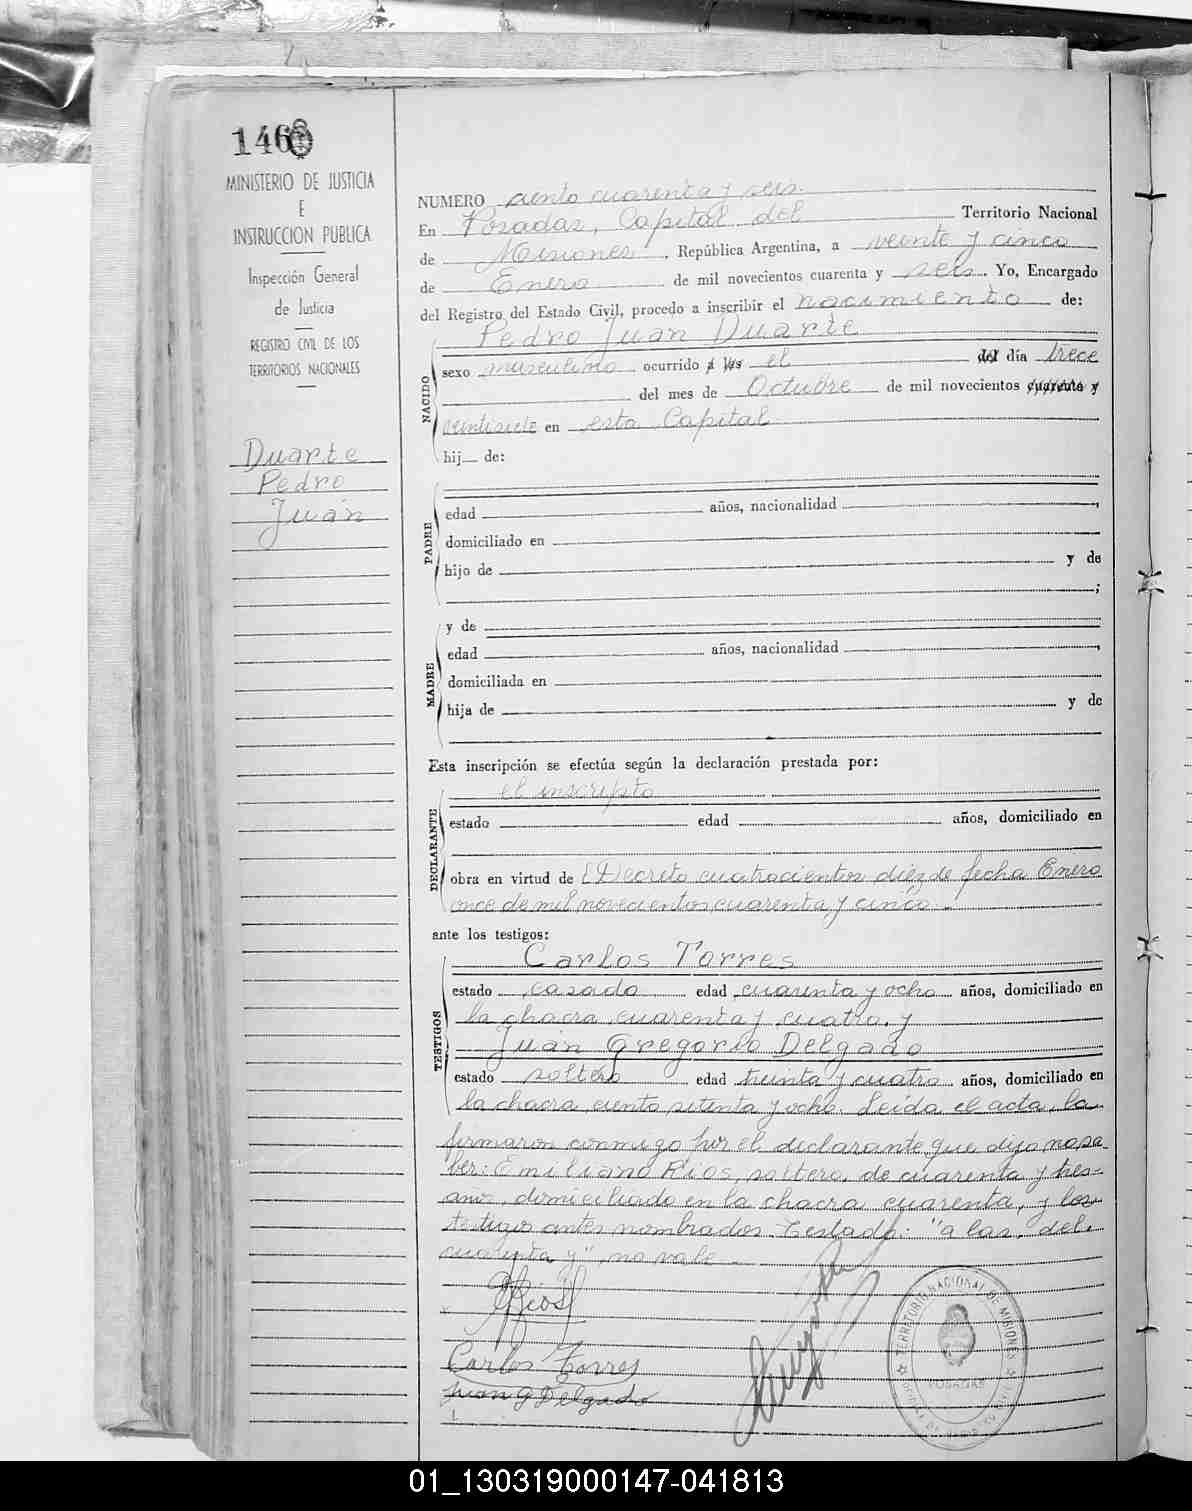 146
MINISTERIO DE JUSTICIA
E
INSTRUCCION PUBLICA
Inspección General
de Justicia
REGISTRO CIVIL DE LOS
TERRITORIOS NACIONALES
Duarte
Pedro
Juan
NUMERO ciento cuarenta y seis.
En Posadas, Capital del Territorio Nacional
de Misiones, República Argentina, a veinte y cinco
de Enero de mil novecientos cuarenta y seis. Yo, Encargado
del Registro del Estado Civil, procedo a inscribir el nacimiento de:
NACIDO
Pedro Juan Duarte
sexo masculino ocurrido a las el del día trece
del mes de Octubre de mil novecientos cuarenta y
veintisiete en esta Capital
hij de:
PADRE
edad años, nacionalidad ,
domiciliado en
hijo de y de
;
MADRE
y de
edad años, nacionalidad ,
domiciliada en
hija de y de
Esta inscripción se efectúa según la declaración prestada por:
DECLARANTE
el inscripto
estado edad años, domiciliado en
obra en virtud de (Decreto cuatrocientos diez de fecha Enero
once de mil novecientos cuarenta y cinco.
ante los testigos:
TESTIGOS
Carlos Torres
estado casado edad cuarenta y ocho años, domiciliado en
la chacra cuarenta y cuatro, y
Juan Gregorio Delgado
estado soltero edad treinta y cuatro años, domiciliado en
la chacra ciento setenta y ocho. Leida el acta, la
firmaron conmigo por el declarante que dijo no sa-
ber: Emiliano Rios, soltero, de cuarenta y tres
años, domiciliado en la chacra cuarenta, y los
testigos antes nombrados. Testado: "a las, del,
cuarenta y", no vale
Rios
Carlos Torres
Juan G Delgado
TERRITORIO NACIONAL DE MISIONES
POSADAS
01_130319000147-041813